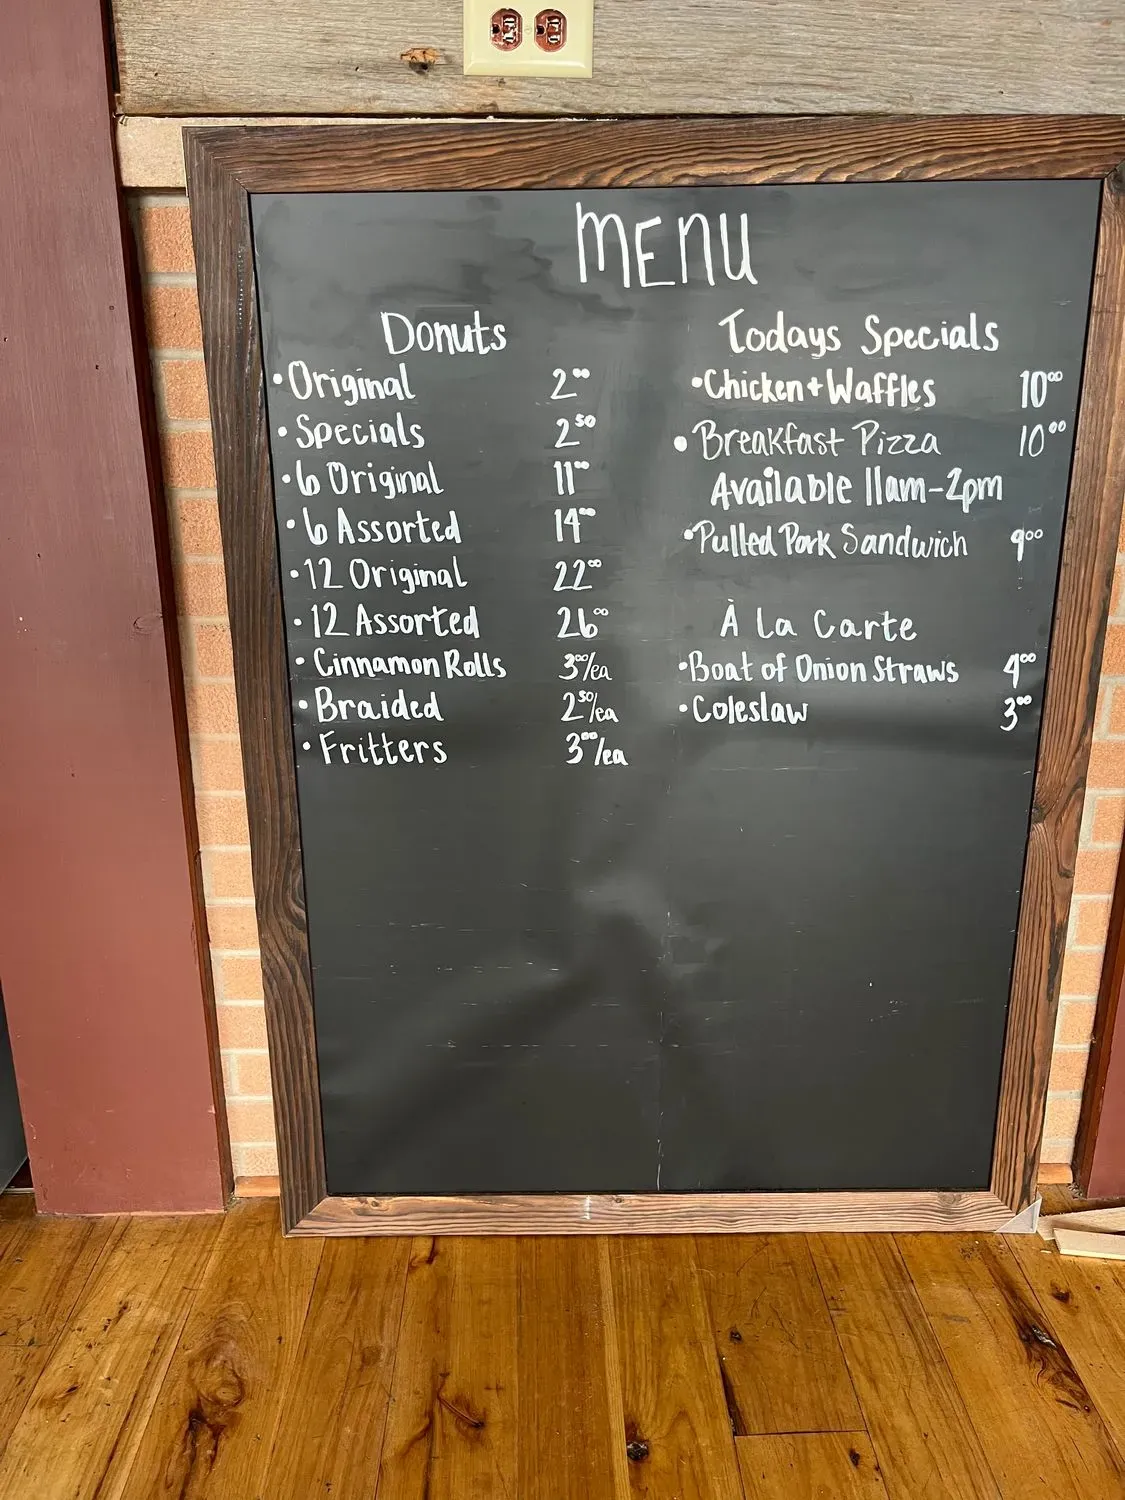 MENU
Donuts
• Original 2.00
• Specials 2.50
• 6 Original 11.00
• 6 Assorted 14.00
• 12 Original 22.00
• 12 Assorted 26.00
• Cinnamon Rolls 3.00/ea
• Braided 2.50/ea
• Fritters 3.00/ea
Todays Specials
• Chicken + Waffles 10.00
• Breakfast Pizza 10.00
Available 11am-2pm
• Pulled Pork Sandwich 9.00
À La Carte
• Boat of Onion Straws 4.00
• Coleslaw 3.00